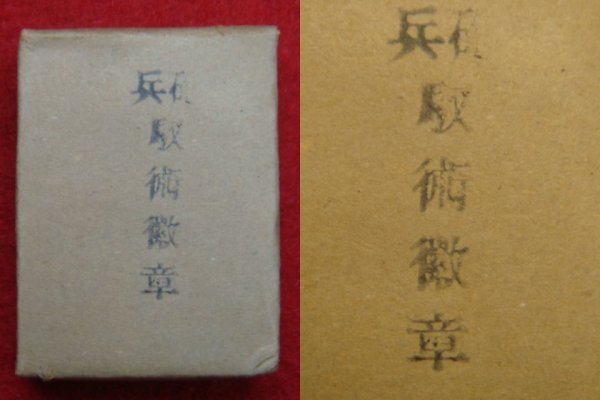 砲兵馭術徽章
砲兵馭術徽章